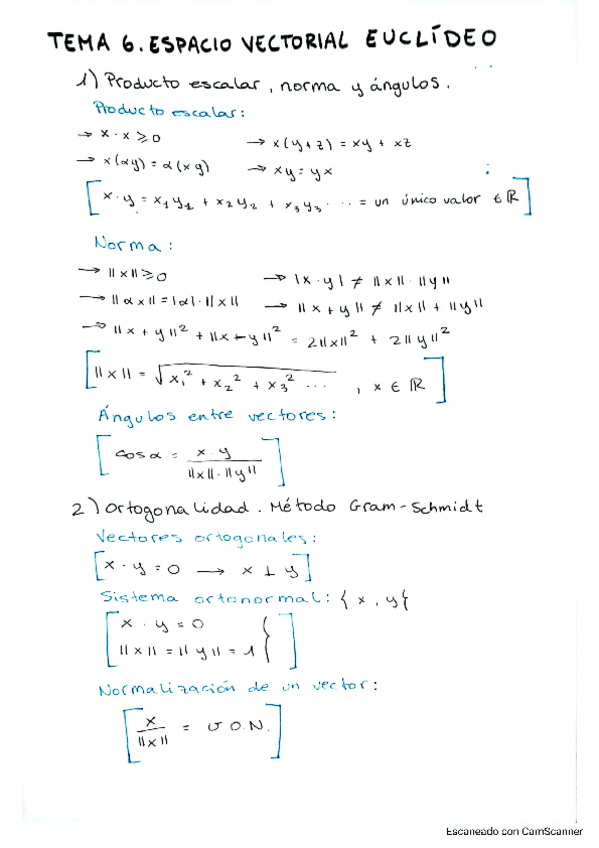 TEMA 6. ESPACIO VECTORIAL EUCLÍDEO
1) Producto escalar, norma y ángulos.
Producto escalar:
→ x · x ⩾ 0 → x(y+z) = xy + xz
→ x(αy) = α(xy) → xy = yx
[x · y = x₁y₁ + x₂y₂ + x₃y₃ ··· = un único valor ∈ ℝ]
Norma:
→ ||x|| ⩾ 0 → |x · y| ≠ ||x|| · ||y||
→ ||αx|| = |α| · ||x|| → ||x + y|| ≠ ||x|| + ||y||
→ ||x + y||² + ||x - y||² = 2||x||² + 2||y||²
[||x|| = √(x₁² + x₂² + x₃² ···) , x ∈ ℝ]
Ángulos entre vectores:
[cos α = x · y / ||x|| · ||y||]
2) Ortogonalidad. Método Gram-Schmidt
Vectores ortogonales:
[x · y = 0 → x ⊥ y]
Sistema ortonormal: {x, y}
[x · y = 0
||x|| = ||y|| = 1}]
Normalización de un vector:
[x / ||x|| = v O.N.]
Escaneado con CamScanner